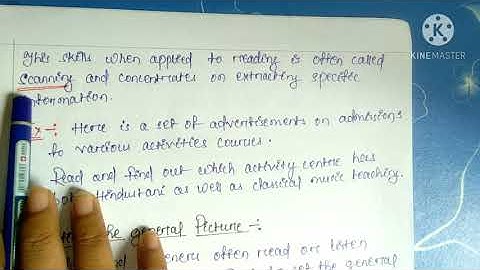 This skills when applied to reading is often called
scanning and concentrates on extracting specific
information.
Ex -: Here is a set of advertisements on admissions
to various activities courses.
Read and find out which activity centre has
both Hindustani as well as classical music teaching.
the general Picture -:
often read or listen
to get the general
KINEMASTER